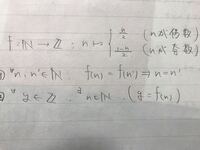 f : ℕ → ℤ : n ↦ { n/2 (nが偶数)
(1-n)/2 (nが奇数)
∀n, n' ∈ ℕ, f(n) = f(n') ⇒ n = n'
∀y ∈ ℤ, ∃n ∈ ℕ, (y = f(n))